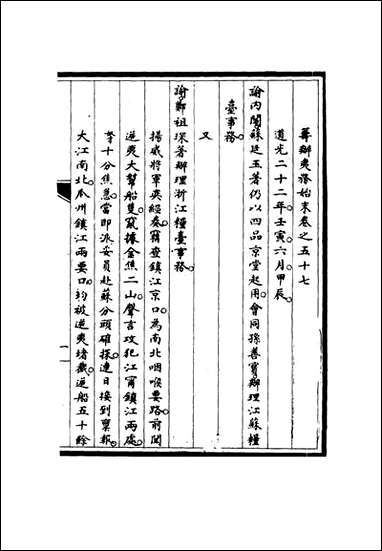 籌辦夷務始末卷之五十七
道光二十二年壬寅六月甲辰。
諭內閣蘇廷玉著仍以四品京堂起用。會同孫善寶辦理江蘇糧
臺事務。
又
諭鄭祖琛著辦理浙江糧臺事務。
揚威將軍奕經奏。竊查鎮江京口。為南北咽喉要路。前聞
逆夷大幫船隻竄據金焦二山。聲言攻犯江甯鎮江兩處。
等十分焦急。當即派委員赴蘇分頭確探。連日接到稟報。
大江南北。瓜州鎮江兩要口。均被逆夷堵截。逆船五十餘
一